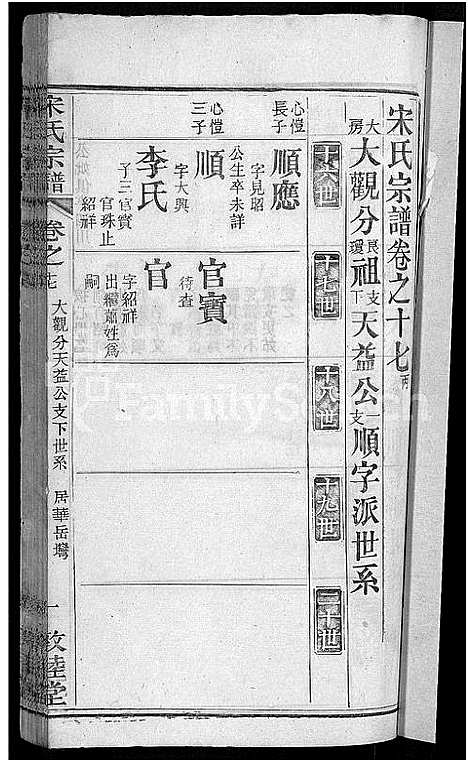 宋氏宗譜卷之十七
大房大觀分良環祖支下天益公一支順字派世系
十六世
十七世
十八世
十九世
二十世
心愷長子
順應
字見昭
公生卒未詳
心愷三子
順
字大興
李氏
子三官寳
官珠止
紹祥
官寳
待查
官
字紹祥
出繼蕭姓爲
嗣
宋氏宗譜
卷之十七
大觀分天益公支下世系
居華岳灣
一
敦睦堂
FamilySearch